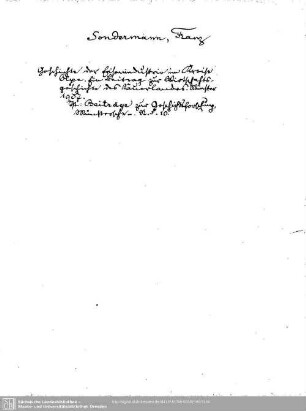 Sondermann, Franz
Geschichte der Eisenindustrie im Kreise
Olpe. Ein Beitrag zur Wirtschafts-
geschichte des Sauerlandes. Münster
1907.
Beiträge zur Geschichtsforschung,
Münstersche. N. F. 10.